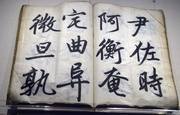 尹佐時
阿衡奄
宅曲阜
微旦孰